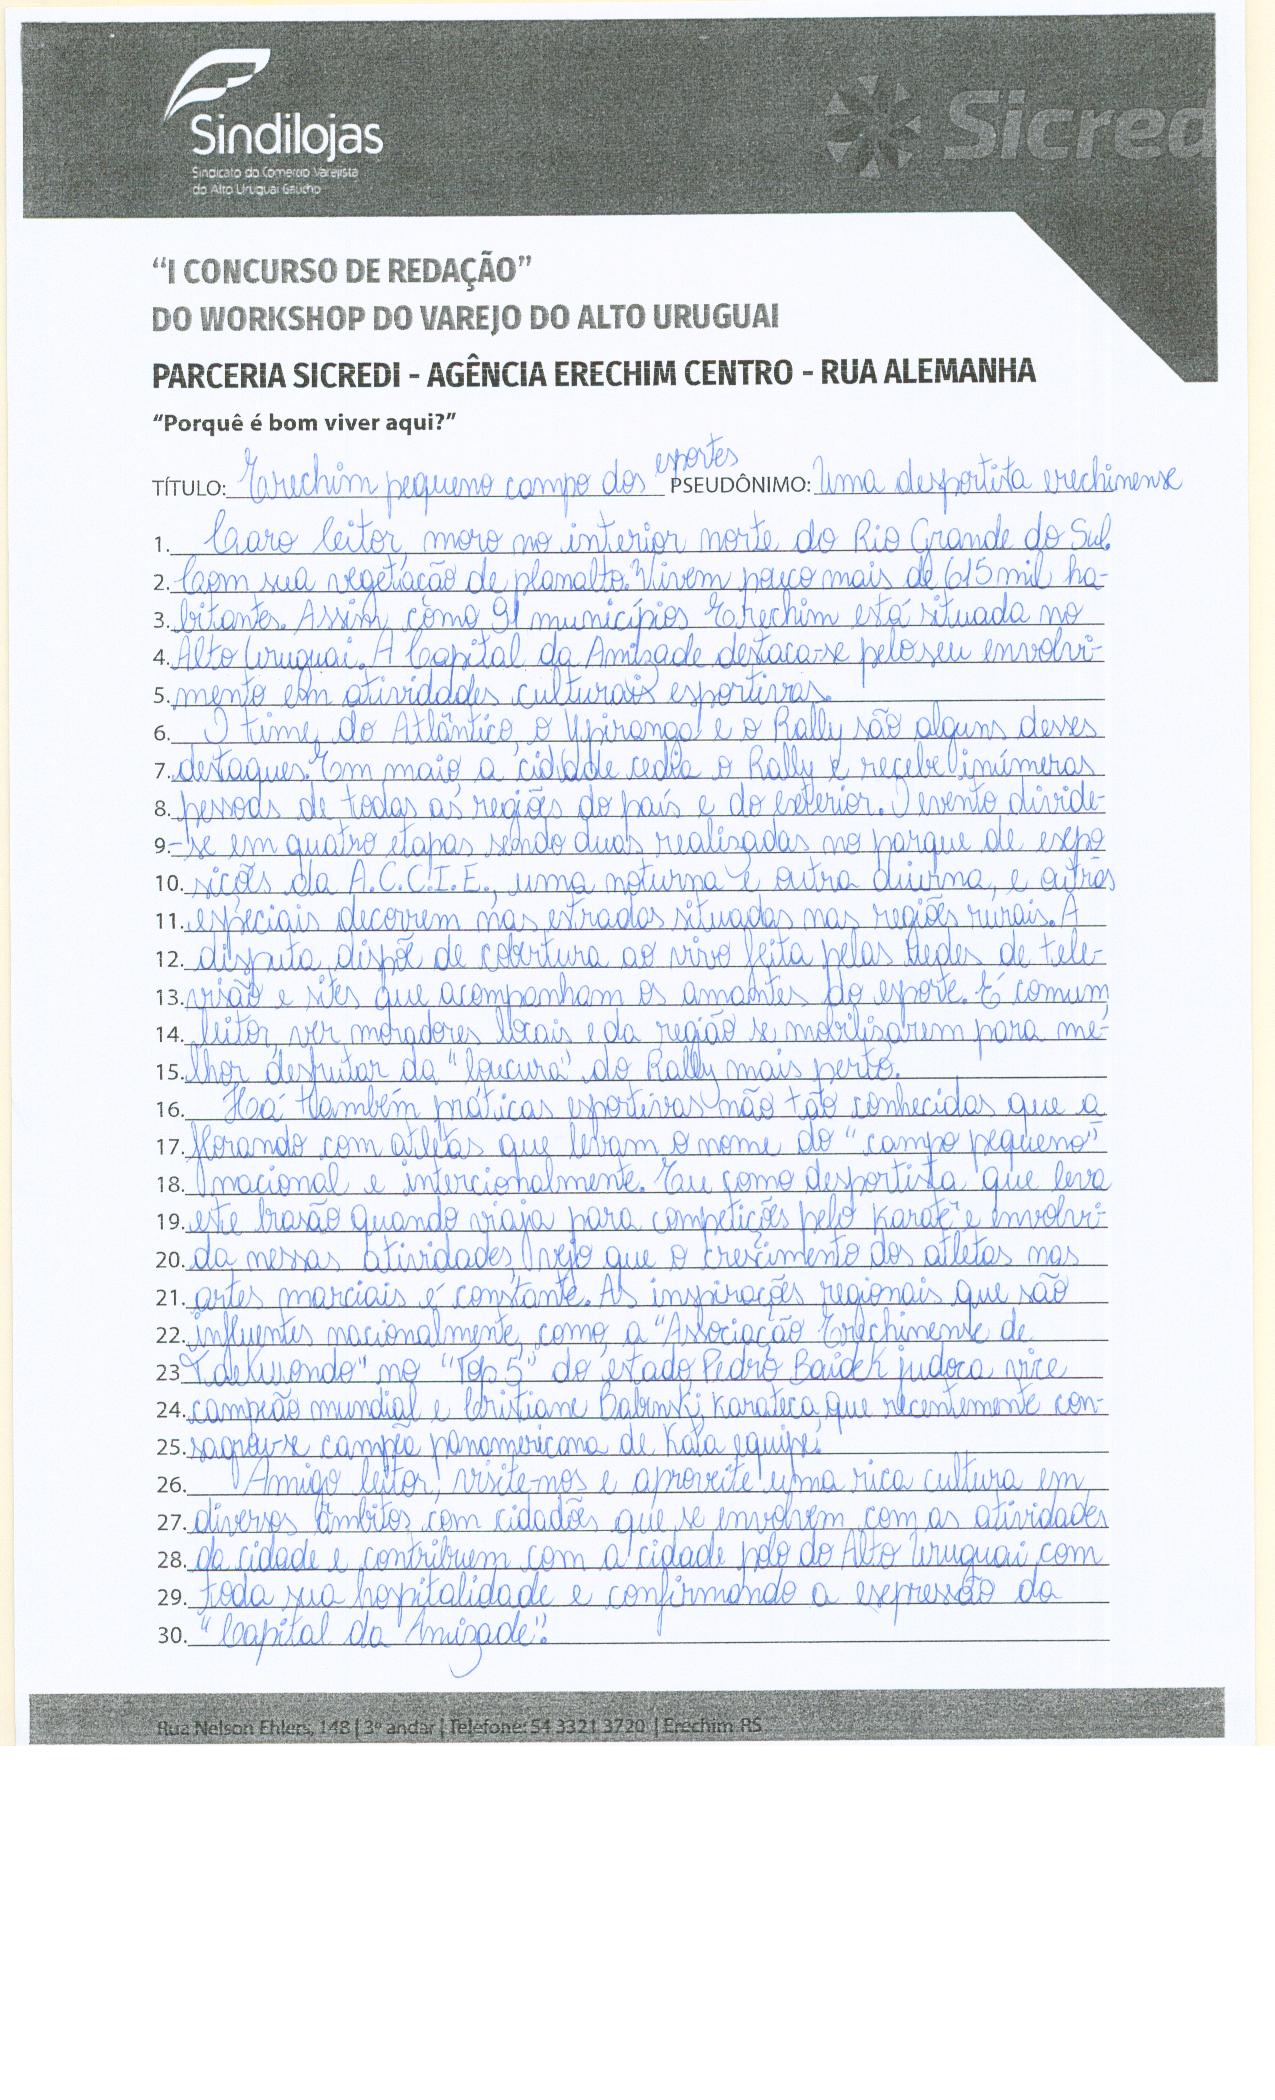 Sindilojas
Sindicato do Comércio Varejista
do Alto Uruguai Gaúcho
Sicred
“I CONCURSO DE REDAÇÃO”
DO WORKSHOP DO VAREJO DO ALTO URUGUAI
PARCERIA SICREDI - AGÊNCIA ERECHIM CENTRO - RUA ALEMANHA
“Porquê é bom viver aqui?”
TÍTULO: Erechim pequeno campo dos esportes PSEUDÔNIMO: Uma desportista erechinense
1. Caro leitor, moro no interior norte do Rio Grande do Sul.
2. Com sua vegetação de planalto. Vivem pouco mais de 615 mil ha-
3. bitantes. Assim, como 91 municípios Erechim está situada no
4. Alto Uruguai. A Capital da Amizade destaca-se pelo seu envolvi-
5. mento em atividades culturais esportivas.
6. O time, do Atlântico, o Ypiranga e o Rally são alguns desses
7. destaques. Em maio a cidade cedia o Rally e recebe inúmeras
8. pessoas de todas as regiões do país e do exterior. O evento divide-
9. -se em quatro etapas sendo duas realizadas no parque de expo
10. sicões da A.C.C.I.E., uma noturna e outra diurna, e outras
11. especiais decorrem nas estradas situadas nas regiões rurais. A
12. disputa dispõe de cobertura ao vivo feita pelas Redes de tele-
13. visão e sites que acompanham os amantes do esporte. É comum,
14. leitor, ver moradores locais e da região se mobilisarem para me-
15. lhor desfrutar da “loucura” do Rally mais perto.
16. Há também práticas esportivas não tão conhecidas que a
17. florando com atletas que levam o nome do “campo pequeno”
18. nacional e intercionalmente. Eu como desportista que leva
19. este brasão quando viaja para competições pelo karatê e envolvi-
20. da nessas atividades, vejo que o crescimento dos atletas nas
21. artes marciais é constante. As inspirações regionais que são
22. influentes nacionalmente, como, a “Associação Erechinense de
23. Taekwondo” no “Top 5” do estado Pedro Baidek judoca vice
24. campeão mundial e Cristiane Babinski, karateca, que recentemente con-
25. sagrou-se campeã panamericana de Kata equipe.
26. Amigo leitor, visite-nos e aproveite uma rica cultura em
27. diversos âmbitos com cidadões que se envolvem com as atividades
28. da cidade e contribuem com a cidade polo do Alto Uruguai com
29. toda sua hospitalidade e confirmando a expressão da
30. “Capital da Amizade”.
Rua Nelson Ehlers, 148 | 3º andar | Telefone: 54 3321 3720 | Erechim-RS